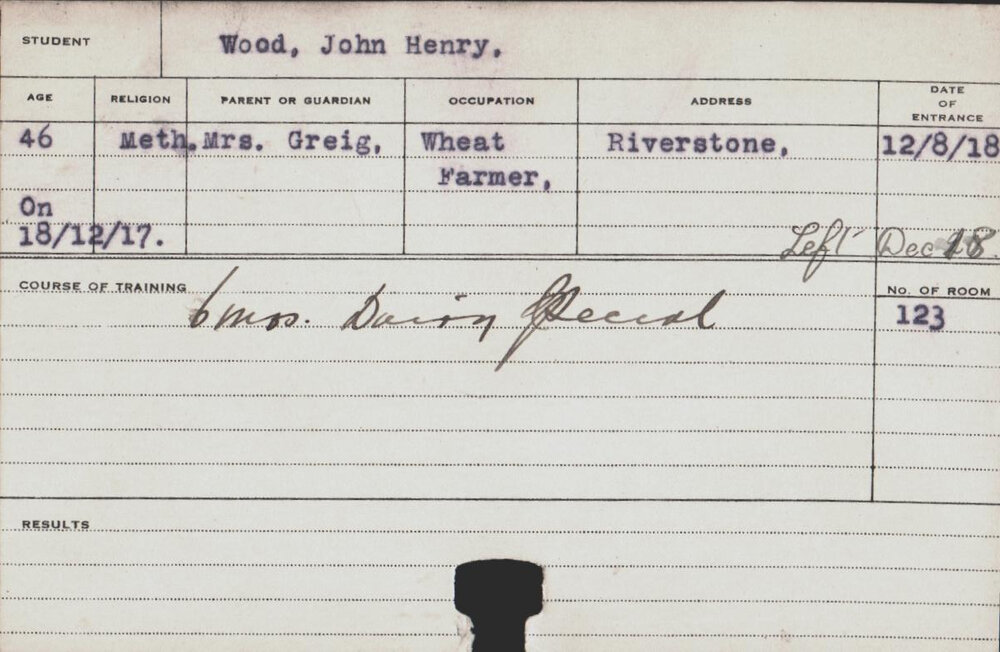 STUDENT Wood, John Henry.
AGE RELIGION PARENT OR GUARDIAN OCCUPATION ADDRESS DATE OF ENTRANCE
46 Meth. Mrs. Greig, Wheat Riverstone, 12/8/18
Farmer,
On
18/12/17.
Left Dec 18.
COURSE OF TRAINING No. OF ROOM
6 mos. Dairy Special 123
RESULTS